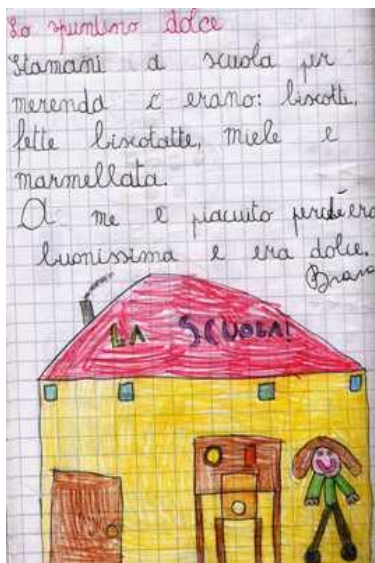 Lo spuntino dolce
Stamani a scuola per
merenda c erano: biscotti,
fette biscotatte, miele e
marmellata.
A me e piaciuto perchè era
buonissima e era dolce.
Brava
LA SCUOLA!